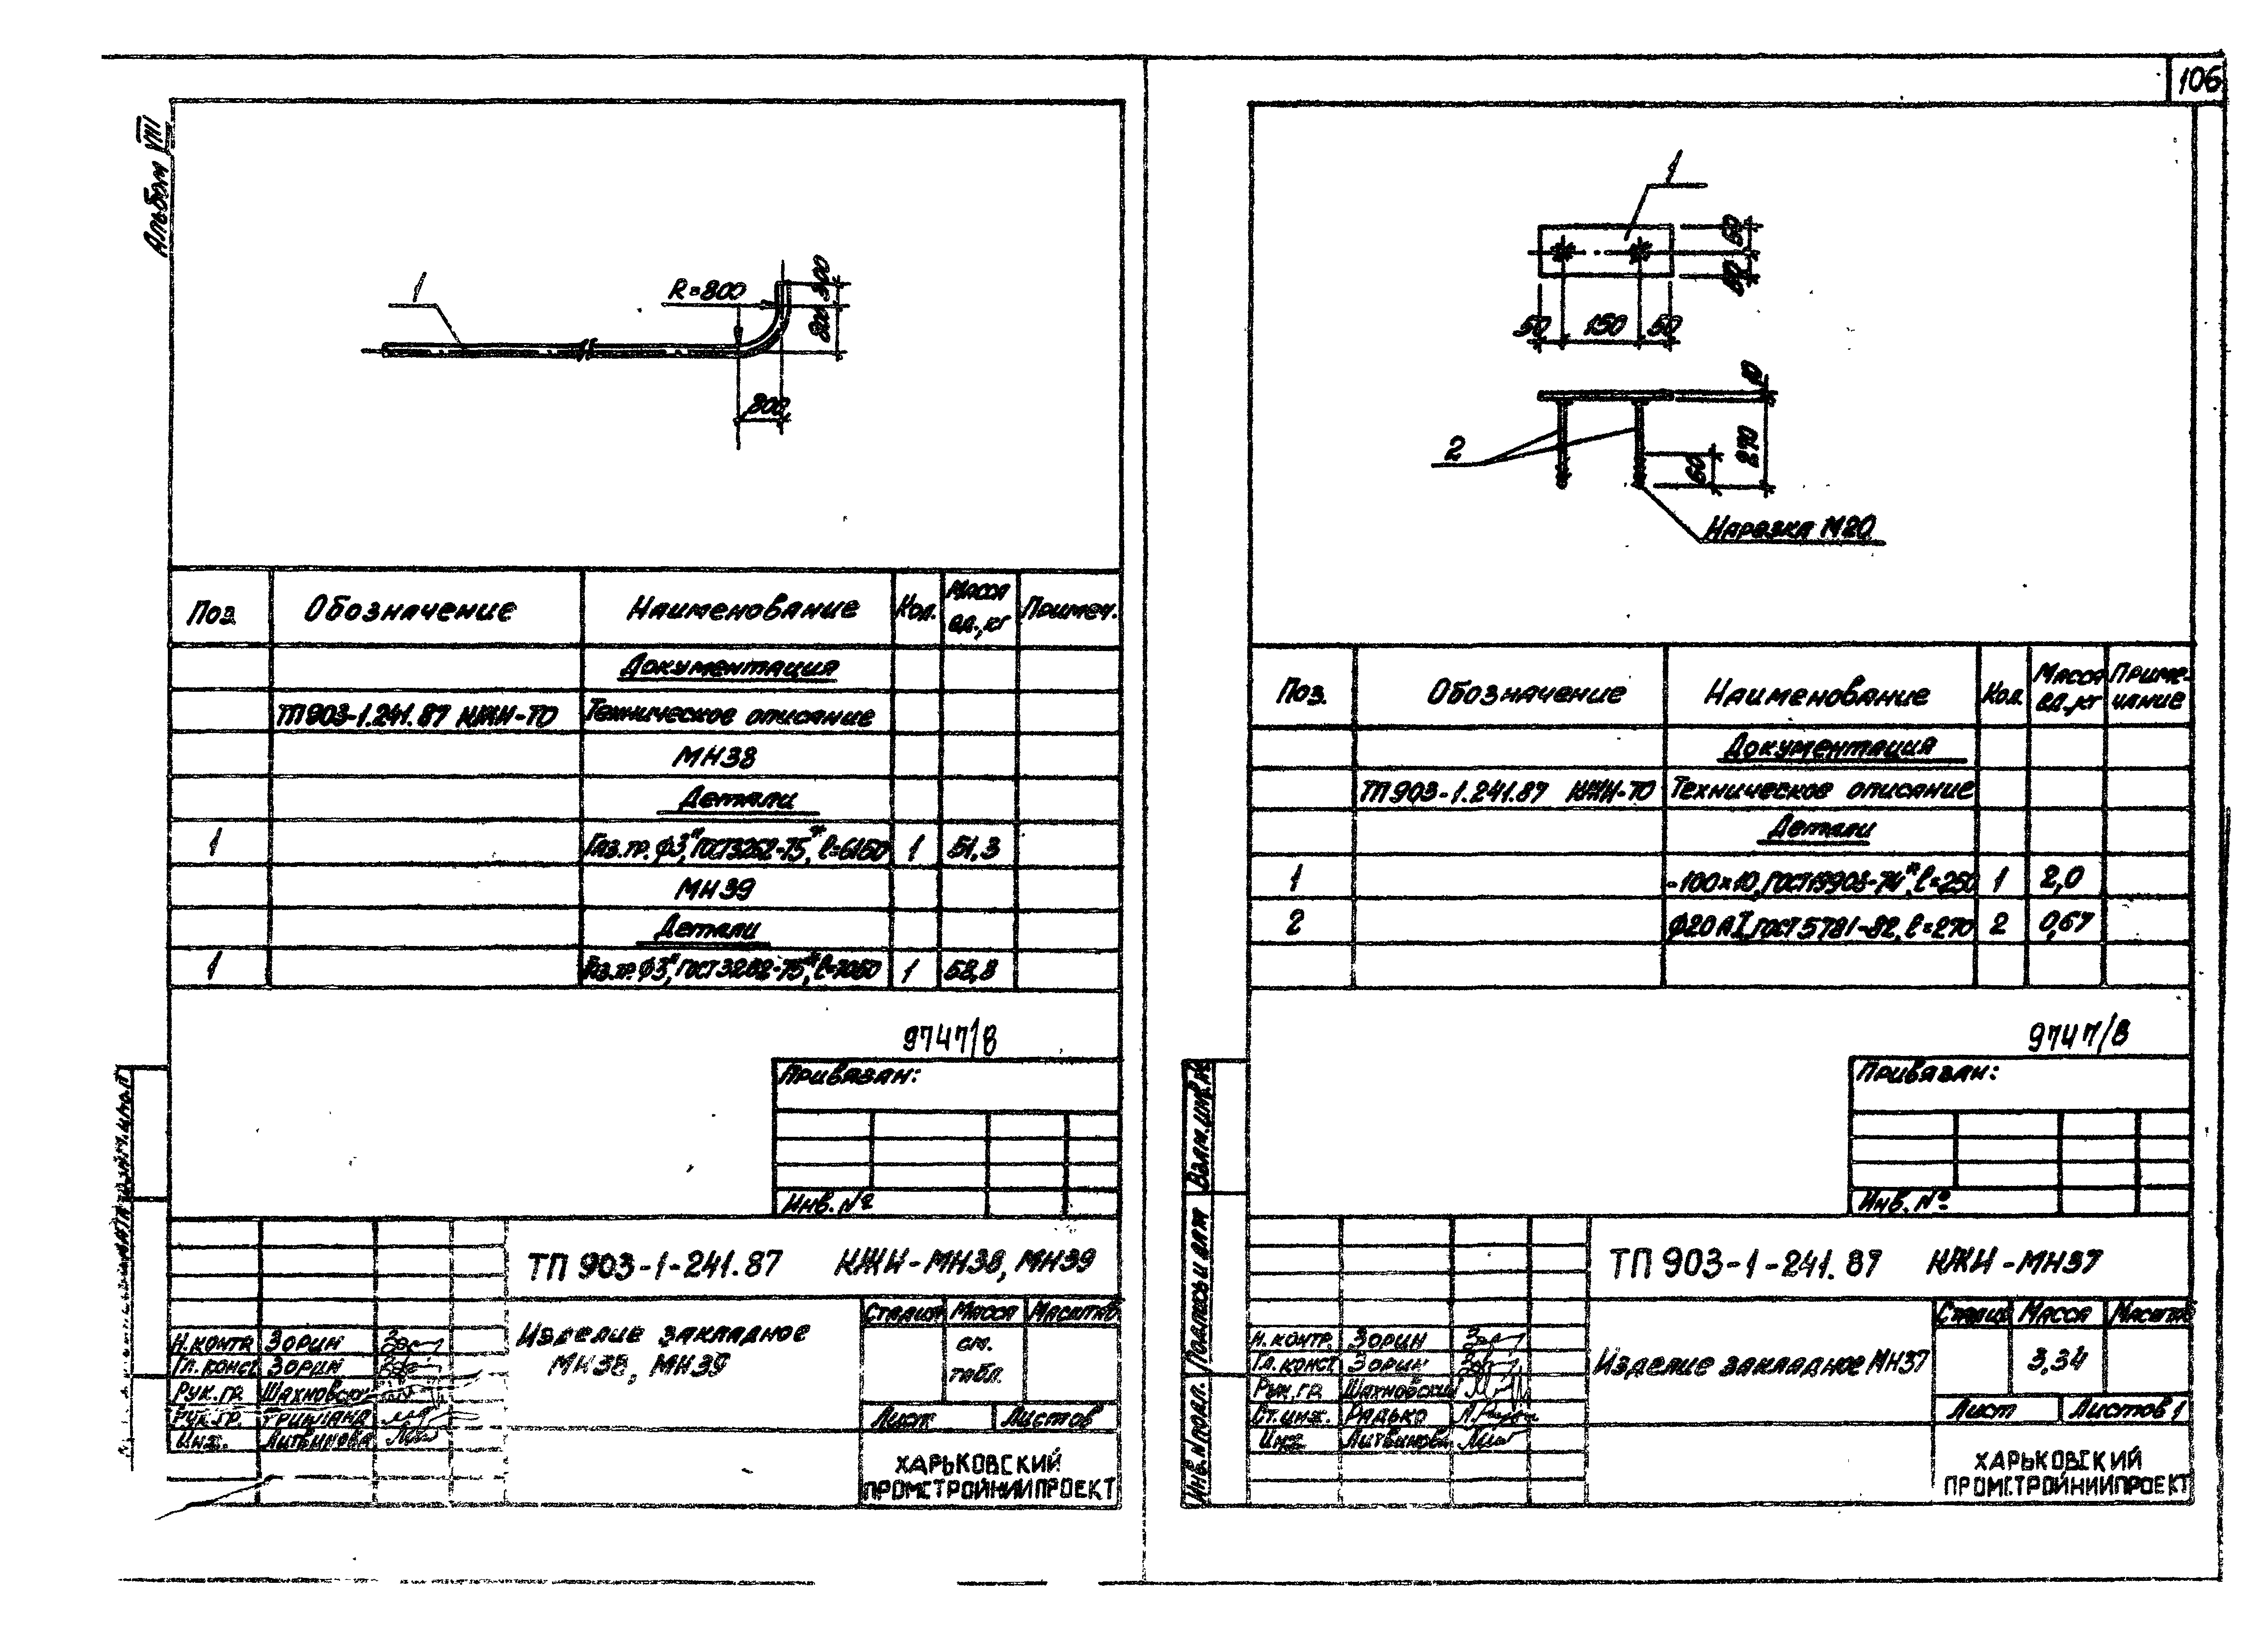 106
Альбом VIII
1
R=800
300
800
800
Поз.
Обозначение
Наименование
Кол.
Масса ед., кг
Примеч.
Документация
ТП 903-1.241.87 КЖН-ТО
Техническое описание
МН38
Детали
1
Газ.тр. ф3", ГОСТ 3262-75*, ℓ=6150
1
51,3
МН39
Детали
1
Газ.тр. ф3", ГОСТ 3262-75*, ℓ=7050
1
58,8
9747/8
Привязан:
Инв. №
ТП 903-1-241.87 КЖН-МН38, МН39
Н.контр. Зорин
Гл.конст. Зорин
Рук.гр. Шахновский
Рук.гр.
Инж. Литвинова
Изделие закладное
МН38, МН39
Стадия Масса Масштаб
см.
табл.
Лист Листов
ХАРЬКОВСКИЙ
ПРОМСТРОЙНИИПРОЕКТ
1
50
50
50 150 50
10
2
270
60
Нарезка М20
Поз.
Обозначение
Наименование
Кол.
Масса ед., кг
Примечание
Документация
ТП 903-1.241.87 КЖН-ТО
Техническое описание
Детали
1
-100×10, ГОСТ 19903-74*, ℓ=250
1
2,0
2
ф20 АI, ГОСТ 5781-82, ℓ=270
2
0,67
9747/8
Привязан:
Инв. №
Взам. инв. №
Подпись и дата
Инв. № подл.
ТП 903-1-241.87 КЖН-МН37
Н.контр. Зорин
Гл.конст Зорин
Рук.гр. Шахновский
Ст.инж. Радько
Инж. Литвинова
Изделие закладное МН37
Стадия Масса Масштаб
3,34
Лист Листов 1
ХАРЬКОВСКИЙ
ПРОМСТРОЙНИИПРОЕКТ